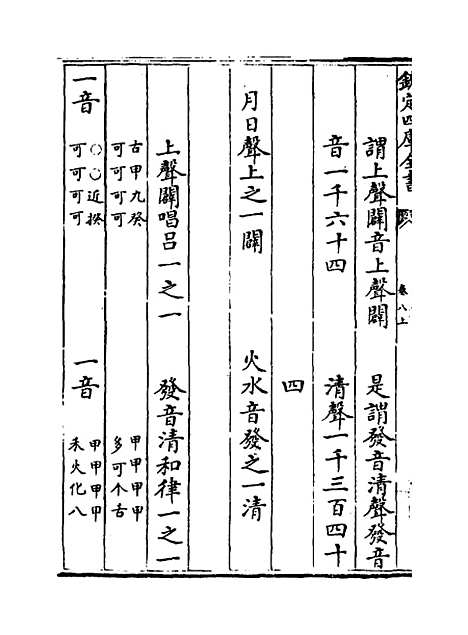 欽定四庫全書 卷八上
謂上聲闢音上聲闢 是謂發音清聲發音
音一千六十四 清聲一千三百四十
四
月日聲上之一闢 火水音發之一清
上聲闢唱吕一之一 發音清和律一之一
古甲九癸 甲甲甲甲
可可可可 多可个古
一音 ○○近揆 一音 甲甲甲甲
可可可可 禾火化八